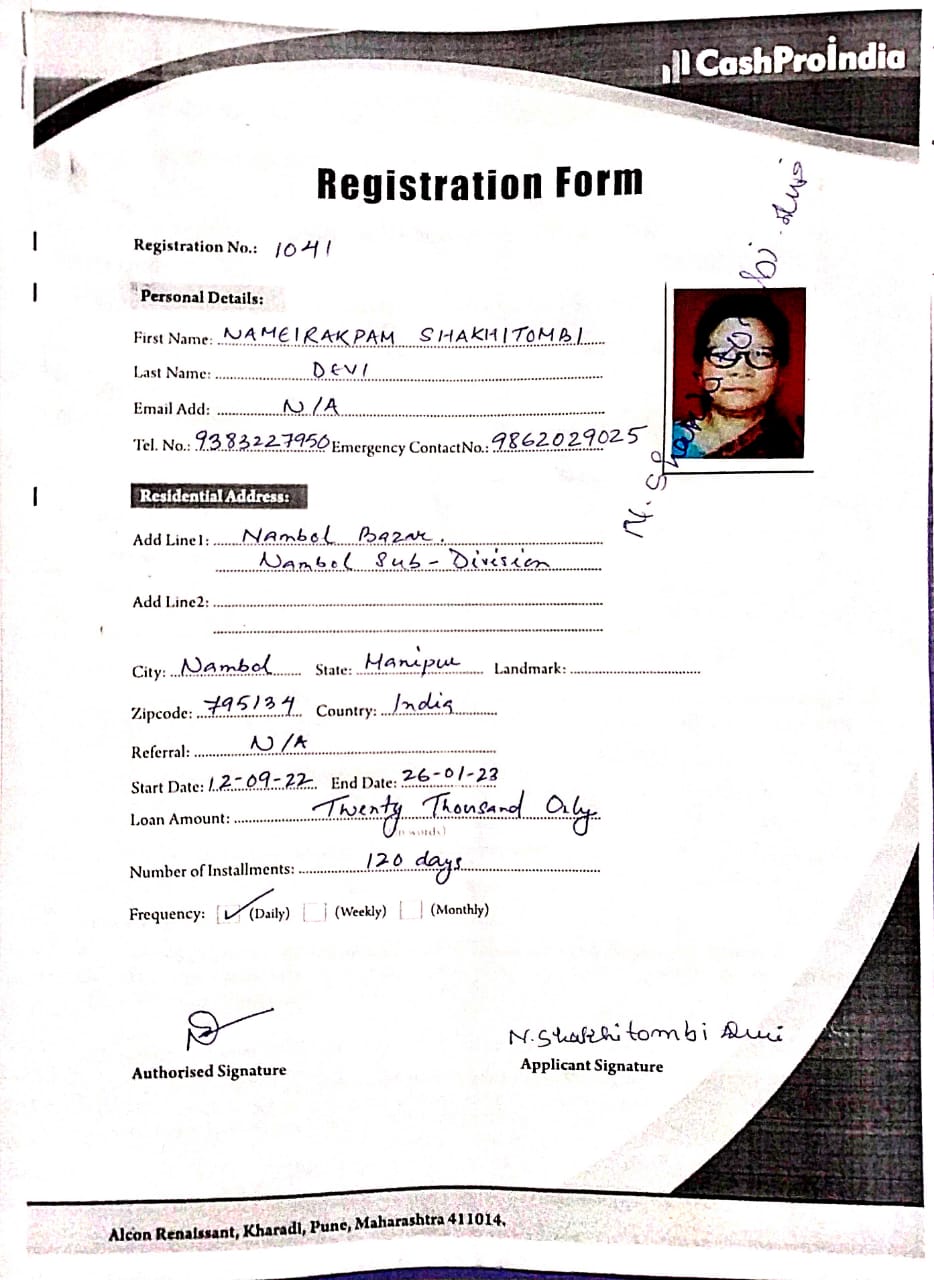 CashProIndia
Registration Form
Registration No.: 1041
Personal Details:
First Name: NAMEIRAKPAM SHAKHITOMBI
Last Name: DEVI
Email Add: N/A
Tel. No.: 9383227950 Emergency ContactNo.: 9862029025
Residential Address:
Add Line1: Nambol Bazar.
Nambol Sub-Division
Add Line2:
City: Nambol State: Manipur Landmark:
Zipcode: 795134 Country: India
Referral: N/A
Start Date: 12-09-22 End Date: 26-01-23
Loan Amount: Twenty Thousand Only
words)
Number of Installments: 120 days
Frequency: (Daily) (Weekly) (Monthly)
N. Shakhitombi Devi
Authorised Signature
Applicant Signature
Alcon Renaissant, Kharadi, Pune, Maharashtra 411014.